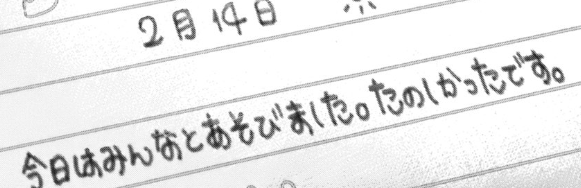 2月14日
今日はみんなとあそびました。たのしかったです。